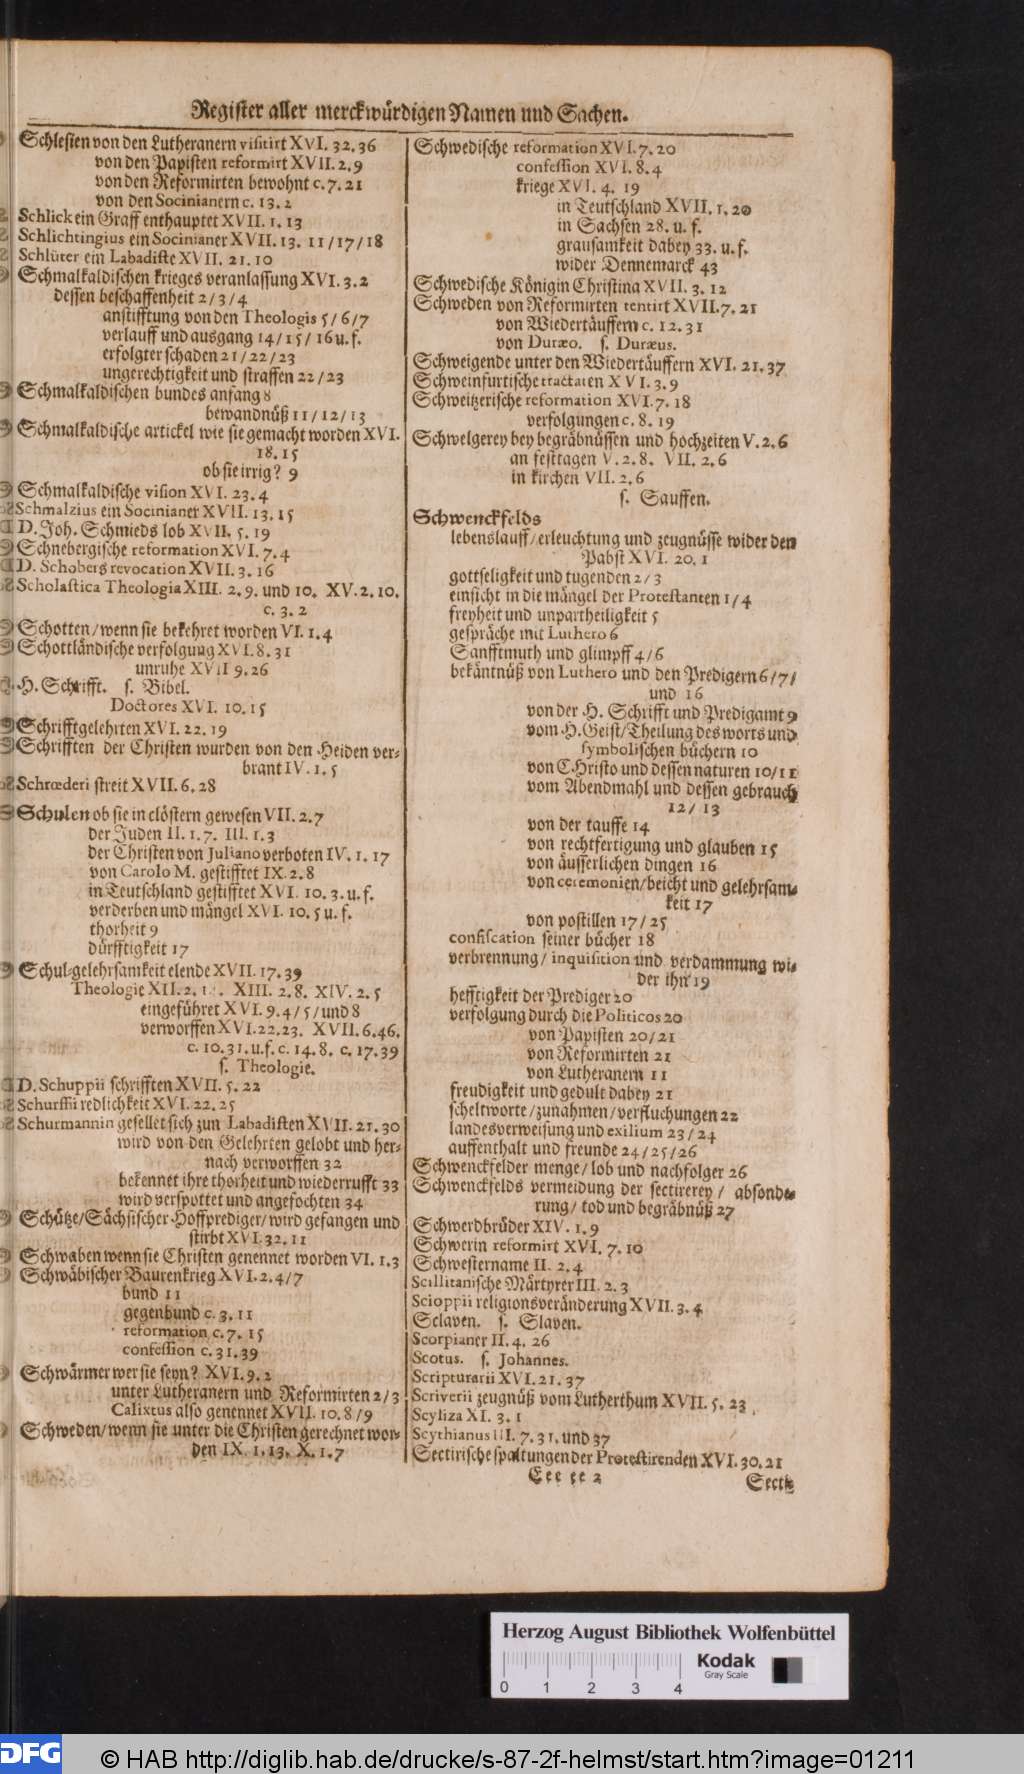 Register aller merckwürdigen Namen und Sachen.
Schlesien von den Lutheranern visitirt XVI. 32. 36
von den Papisten reformirt XVII. 2. 9
von den Reformirten bewohnt c. 7. 21
von den Socinianern c. 13. 2
Schlick ein Graff enthauptet XVII. 1. 13
Schlichtingius ein Socinianer XVII. 13. 11/17/18
Schlüter ein Labadiste XVII. 21. 10
Schmalkaldischen krieges veranlassung XVI. 3. 2
dessen beschaffenheit 2/3/4
anstifftung von den Theologis 5/6/7
verlauff und ausgang 14/15/16 u. f.
erfolgter schaden 21/22/23
ungerechtigkeit und straffen 22/23
Schmalkaldischen bundes anfang 8
bewandnüß 11/12/13
Schmalkaldische artickel wie sie gemacht worden XVI.
18. 15
ob sie irrig? 9
Schmalkaldische vision XVI. 23. 4
Schmalzius ein Socinianer XVII. 13. 15
D. Joh. Schmieds lob XVII. 5. 19
Schnebergische reformation XVI. 7. 4
D. Schobers revocation XVII. 3. 16
Scholastica Theologia XIII. 2. 9. und 10. XV. 2. 10.
c. 3. 2
Schotten/wenn sie bekehret worden VI. 1. 4
Schottländische verfolgung XVI. 8. 31
unruhe XVII 9. 26
H. Schrifft. s. Bibel.
Doctores XVI. 10. 15
Schrifftgelehrten XVI. 22. 19
Schrifften der Christen wurden von den Heiden ver-
brant IV. 1. 5
Schrœderi streit XVII. 6. 28
Schulen ob sie in clöstern gewesen VII. 2. 7
der Juden II. 1. 7. III. 1. 3
der Christen von Juliano verboten IV. 1. 17
von Carolo M. gestifftet IX. 2. 8
in Teutschland gestifftet XVI. 10. 3. u. f.
verderben und mängel XVI. 10. 5 u. f.
thorheit 9
dürfftigkeit 17
Schul-gelehrsamkeit elende XVII. 17. 39
Theologie XII. 2. XIII. 2. 8. XIV. 2. 5
eingeführet XVI. 9. 4/5/und 8
verworffen XVI. 22. 23. XVII. 6. 46.
c. 10. 31. u. f. c. 14. 8. c. 17. 39
s. Theologie.
D. Schuppii schrifften XVII. 5. 22
Schurffii redlichkeit XVI. 22. 25
Schurmannin gesellet sich zun Labadisten XVII. 21. 30
wird von den Gelehrten gelobt und her-
nach verworffen 32
bekennet ihre thorheit und wiederrufft 33
wird verspottet und angefochten 34
Schütze/Sächsischer Hoffprediger/wird gefangen und
stirbt XVI. 32. 11
Schwaben wenn sie Christen genennet worden VI. 1. 3
Schwäbischer Baurenkrieg XVI. 2. 4/7
bund 11
gegenbund c. 3. 11
reformation c. 7. 15
confession c. 31. 39
Schwärmer wer sie seyn? XVI. 9. 2
unter Lutheranern und Reformirten 2/3
Calixtus also genennet XVII. 10. 8/9
Schweden/wenn sie unter die Christen gerechnet wor-
den IX. 1. 13. X. 1. 7
Schwedische reformation XVI. 7. 20
confession XVI. 8. 4
kriege XVI. 4. 19
in Teutschland XVII. 1. 20
in Sachsen 28. u. f.
grausamkeit dabey 33. u. f.
wider Dennemarck 43
Schwedische Königin Christina XVII. 3. 12
Schweden von Reformirten tentirt XVII. 7. 21
von Wiedertäuffern c. 12. 31
von Duræo. s. Duræus.
Schweigende unter den Wiedertäuffern XVI. 21. 37
Schweinfurtische tractaten XVI. 3. 9
Schweitzerische reformation XVI. 7. 18
verfolgungen c. 8. 19
Schwelgerey bey begräbnüssen und hochzeiten V. 2. 6
an festtagen V. 2. 8. VII. 2. 6
in kirchen VII. 2. 6
s. Sauffen.
Schwenckfelds
lebenslauff/erleuchtung und zeugnüsse wider den
Pabst XVI. 20. 1
gottseligkeit und tugenden 2/3
einsicht in die mängel der Protestanten 1/4
freyheit und unpartheiligkeit 5
gespräche mit Luthero 6
Sanfftmuth und glimpff 4/6
bekäntnüß von Luthero und den Predigern 6/7/
und 16
von der H. Schrifft und Predigamt 9
vom H. Geist/Theilung des worts und
symbolischen büchern 10
von Christo und dessen naturen 10/11
vom Abendmahl und dessen gebrauch
12/13
von der tauffe 14
von rechtfertigung und glauben 15
von äusserlichen dingen 16
von ceremonien/beicht und gelehrsam-
keit 17
von postillen 17/25
confiscation seiner bücher 18
verbrennung/inquisition und verdammung wi-
der ihn 19
hefftigkeit der Prediger 20
verfolgung durch die Politicos 20
von Papisten 20/21
von Reformirten 21
von Lutheranern 11
freudigkeit und gedult dabey 21
scheltworte/zunahmen/verfluchungen 22
landesverweisung und exilium 23/24
auffenthalt und freunde 24/25/26
Schwenckfelder menge/lob und nachfolger 26
Schwenckfelds vermeidung der sectirerey/ absonde-
rung/tod und begräbnüß 27
Schwerdbrüder XIV. 1. 9
Schwerin reformirt XVI. 7. 10
Schwestername II. 2. 4
Scillitanische Märtyrer III. 2. 3
Scioppii religionsveränderung XVII. 3. 4
Sclaven. s. Slaven.
Scorpianer II. 4. 26
Scotus. s. Johannes.
Scripturarii XVI. 21. 37
Scriverii zeugnüß vom Lutherthum XVII. 5. 23
Scyliza XI. 3. 1
Scythianus III. 7. 31. und 37
Sectirische spaltungen der Protestirenden XVI. 30. 21
Eee ee 2
Secti-
Herzog August Bibliothek Wolfenbüttel
Kodak
Gray Scale
0 1 2 3 4
DFG
© HAB http://diglib.hab.de/drucke/s-87-2f-helmst/start.htm?image=01211